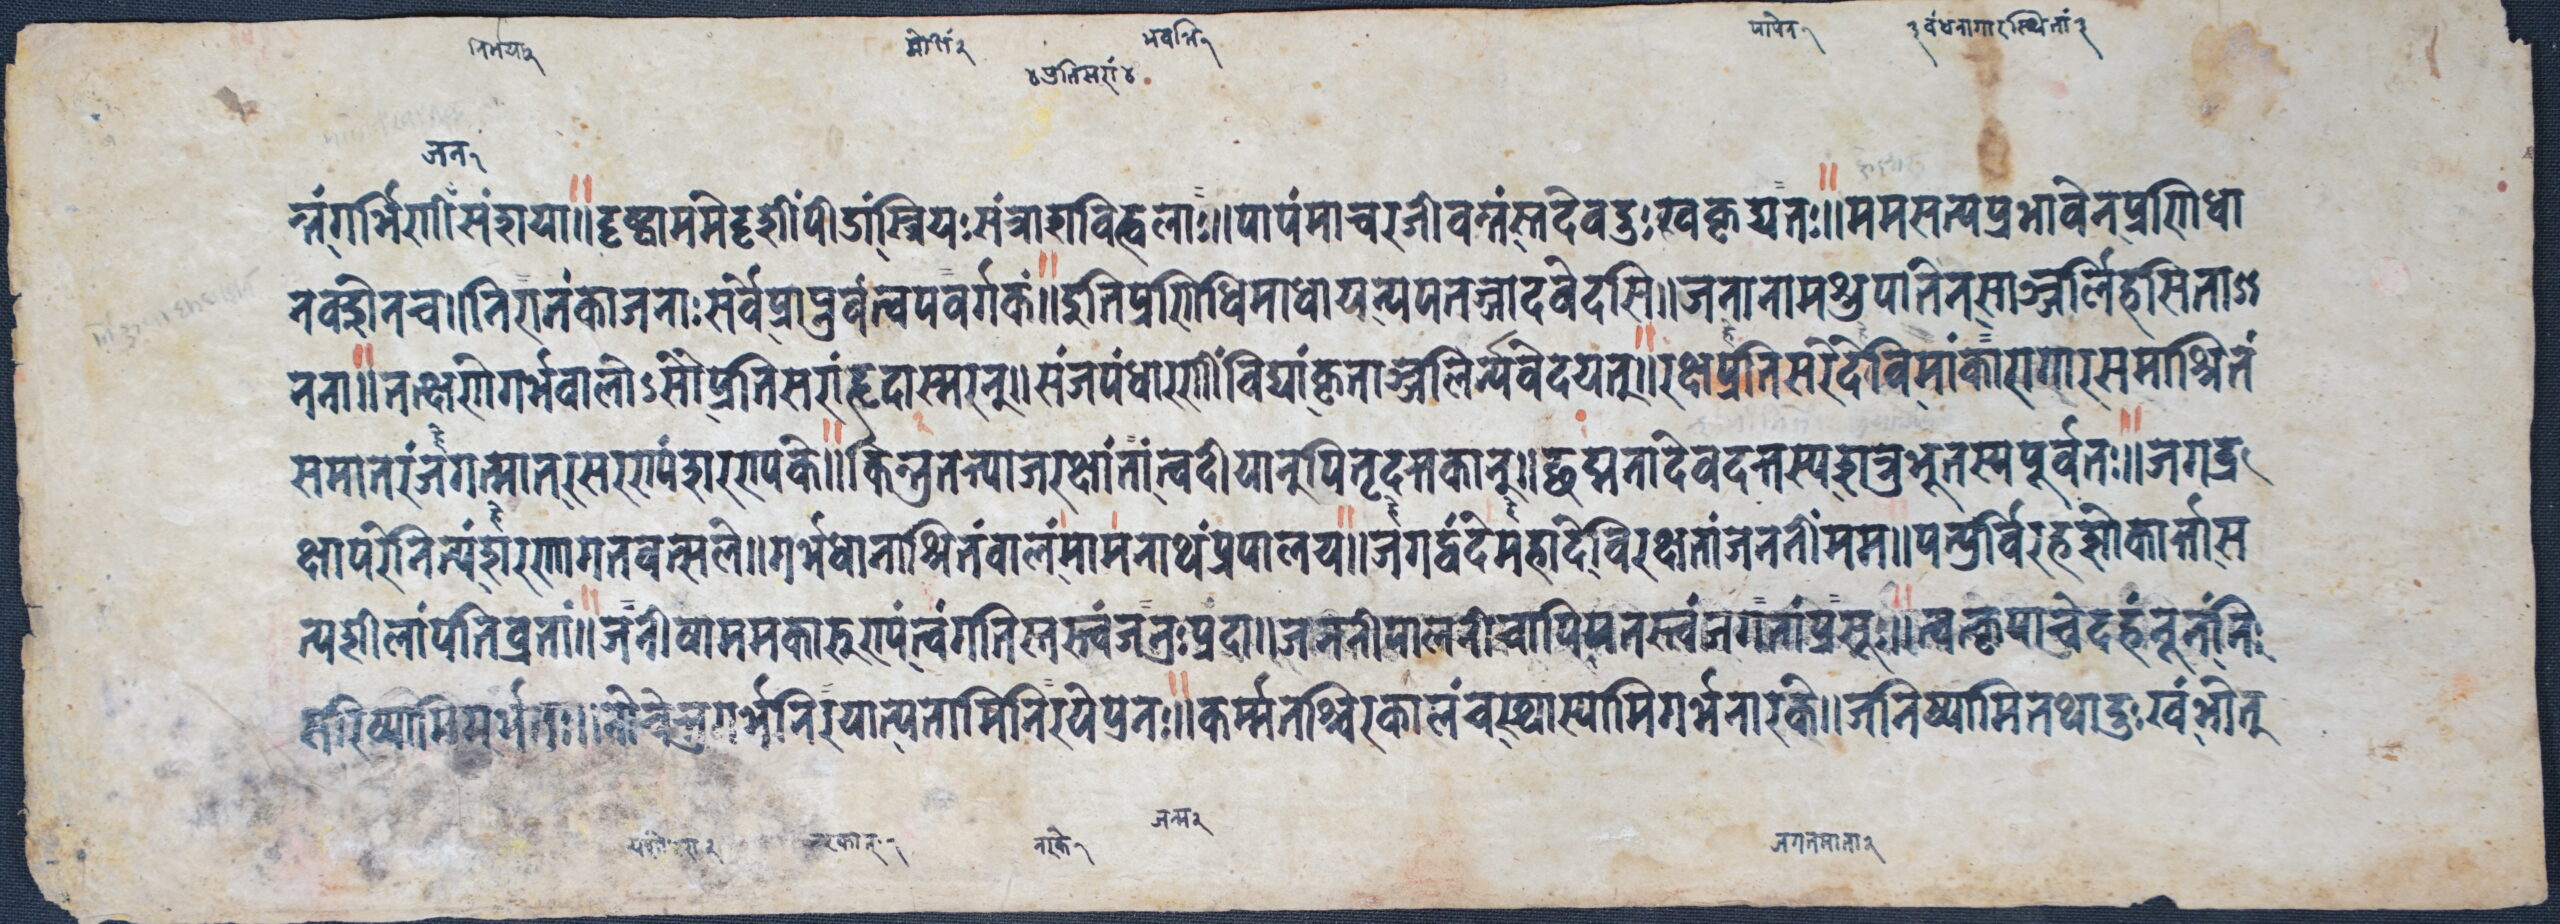 निर्भया२ मोक्षं२ भवन्ति१ पापेन१ ३वंधनागारस्थितां२
४प्रतिसरां४
जन१
न्तं गर्भिणीं संशया॥ दृष्ट्वा ममेदृशीं पीडां स्त्रियः संत्राशविह्वलाः॥ पापं माचरजीवन्तं स्तदेव दुःखकृद्यतः॥ मम सत्यप्रभावेन प्रणिधा
नवलेन च। निरातंका जनाः सर्वे प्राप्नुवंत्वपवर्गकं॥ इति प्रणिधिमाधाय न्यपतज्जादवेदसि॥ जनानामश्रुपातेन साञ्जलिर्हसिता
नना॥ तत्क्षणे गर्भवालोऽसौ प्रतिसरां हृदा स्मरन्॥ संजपं धारणीं विद्यां कृताञ्जलिर्न्यवेदयत्॥ रक्ष प्रतिसरे देवि मां कारागारसमाश्रितं
समातरं जगन्मात र्सरणपं शरणपके॥ किन्तु तत्त्याज रक्षां तां त्वदीयान् पितृदत्तकान्॥ छद्मना देवदत्तस्य भ्रातृभूतस्य पूर्वतः॥ जगद्र
क्षापरे नित्यं शरणागतवत्सले॥ गर्भधानाश्रितं वालं मामनाथं प्रपालय॥ जगद्वंदे महादेवि रक्ष तां जननीं मम॥ पत्युर्विरहशोकार्त्तां स
त्यशीलां पतिव्रतां॥ जननी वा मम कारुण्यं त्वं गतिस्तस्त्वं जनः प्रदा॥ जननी पालनी चापि यतस्त्वं जगतां प्रसूः॥ त्वत्कृपा चेदहं नूनं निः
सरिष्यामि गर्भतः॥ नो चेत्तु गर्भनिरयात्पतामि निरये प्रतः॥ कर्म्मतश्चिरकालं च स्थास्यामि गर्भनारके॥ जनिष्यामि तथा दुःखं भोतु
जन्म२
नरकात्१ नरके१ जगतमाता२